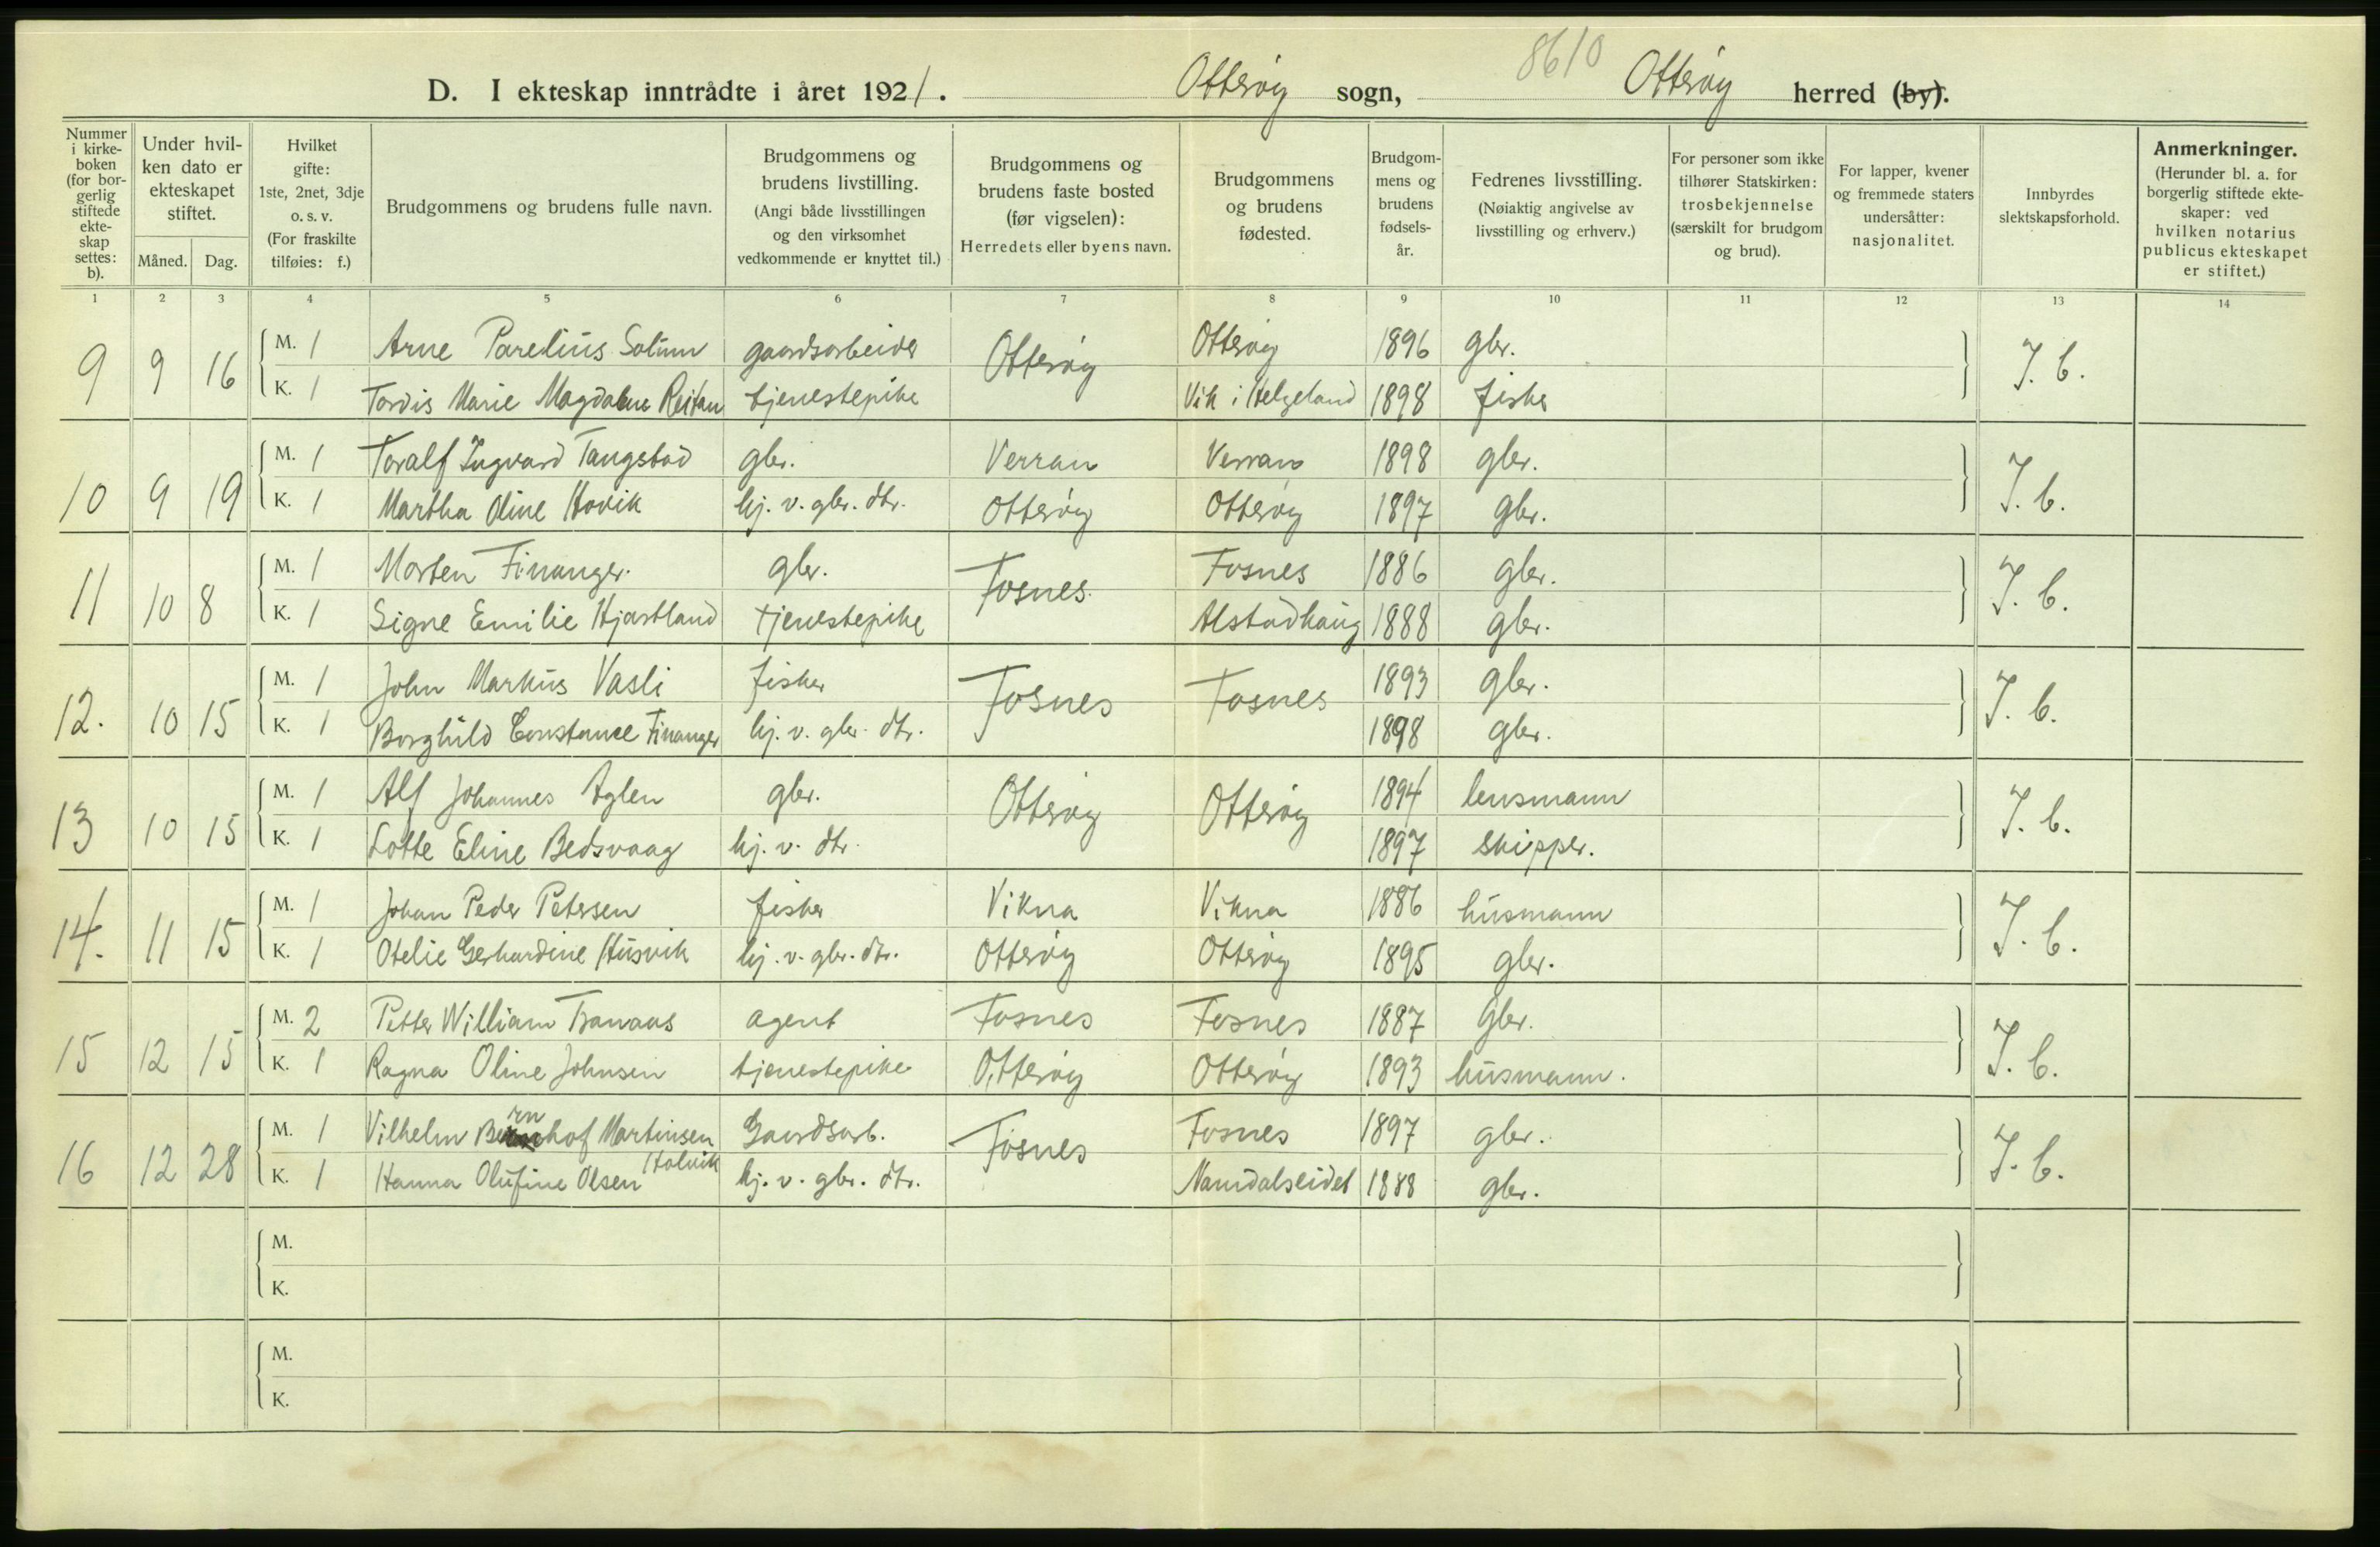 8610
D. I ekteskap inntrådte i året 1921. Otterøy sogn, Otterøy herred (by).
Nummer i kirke-boken (for bor-gerlig stiftede ekte-skap settes: b).
Under hvil-ken dato er ekteskapet stiftet.
Måned. Dag.
Hvilket gifte: 1ste, 2net, 3dje o. s. v. (For fraskilte tilføies: f.)
Brudgommens og brudens fulle navn.
Brudgommens og brudens livstilling. (Angi både livsstillingen og den virksomhet vedkommende er knyttet til.)
Brudgommens og brudens faste bosted (før vigselen): Herredets eller byens navn.
Brudgommens og brudens fødested.
Brudgom-mens og brudens fødsels-år.
Fedrenes livsstilling. (Nøiaktig angivelse av livsstilling og erhverv.)
For personer som ikke tilhører Statskirken: trosbekjennelse (særskilt for brudgom og brud).
For lapper, kvener og fremmede staters undersåtter: nasjonalitet.
Innbyrdes slektskapsforhold.
Anmerkninger. (Herunder bl. a. for borgerlig stiftede ekte-skaper: ved hvilken notarius publicus ekteskapet er stiftet.)
1 2 3 4 5 6 7 8 9 10 11 12 13 14
9 9 16 M. 1 Arne Parelius Solum gaardsarbeider Otterøy Otterøy 1896 gbr. I. b.
K. 1 Tordis Marie Magdalene Reitan tjenestepike Vik i Helgeland 1898 fisker
10 9 19 M. 1 Toralf Ingvard Tangstad gbr. Verran Verran 1898 gbr. I. b.
K. 1 Martha Oline Hovik hj. v. gbr. dtr. Otterøy Otterøy 1897 gbr.
11 10 8 M. 1 Morten Finanger. gbr. Fosnes. Fosnes 1886 gbr. I. b.
K. 1 Signe Emilie Hjartland tjenestepike Alstadhaug 1888 gbr.
12. 10 15 M. 1 John Markus Vasli fisker Fosnes Fosnes 1893 gbr. I. b.
K. 1 Borghild Constance Finanger hj. v. gbr. dtr. 1898 gbr.
13 10 15 M. 1 Alf Johannes Aglen gbr. Otterøy Otterøy 1894 lensmann I. b.
K. 1 Lotte Eline Bedsvaag hj. v. dtr. 1897 skipper.
14. 11 15 M. 1 Johan Peder Petersen fisker Vikna Vikna 1886 husmann I. b.
K. 1 Otelie Gerhardine Husvik hj. v. gbr. dtr. Otterøy Otterøy 1895 gbr.
15 12 15 M. 2 Petter William Tranaas agent Fosnes Fosnes 1887 Gbr. I. b.
K. 1 Ragna Oline Johnsen tjenestepike Otterøy Otterøy 1893 husmann.
16 12 28 M. 1 Vilhelm Bernhof Martinsen Gaardsarb. Fosnes Fosnes 1897 gbr. I. b.
K. 1 Hanna Olufine Olsen Holvik hj. v. gbr. dtr. Namdalseidet 1888 gbr.
M.
K.
M.
K.